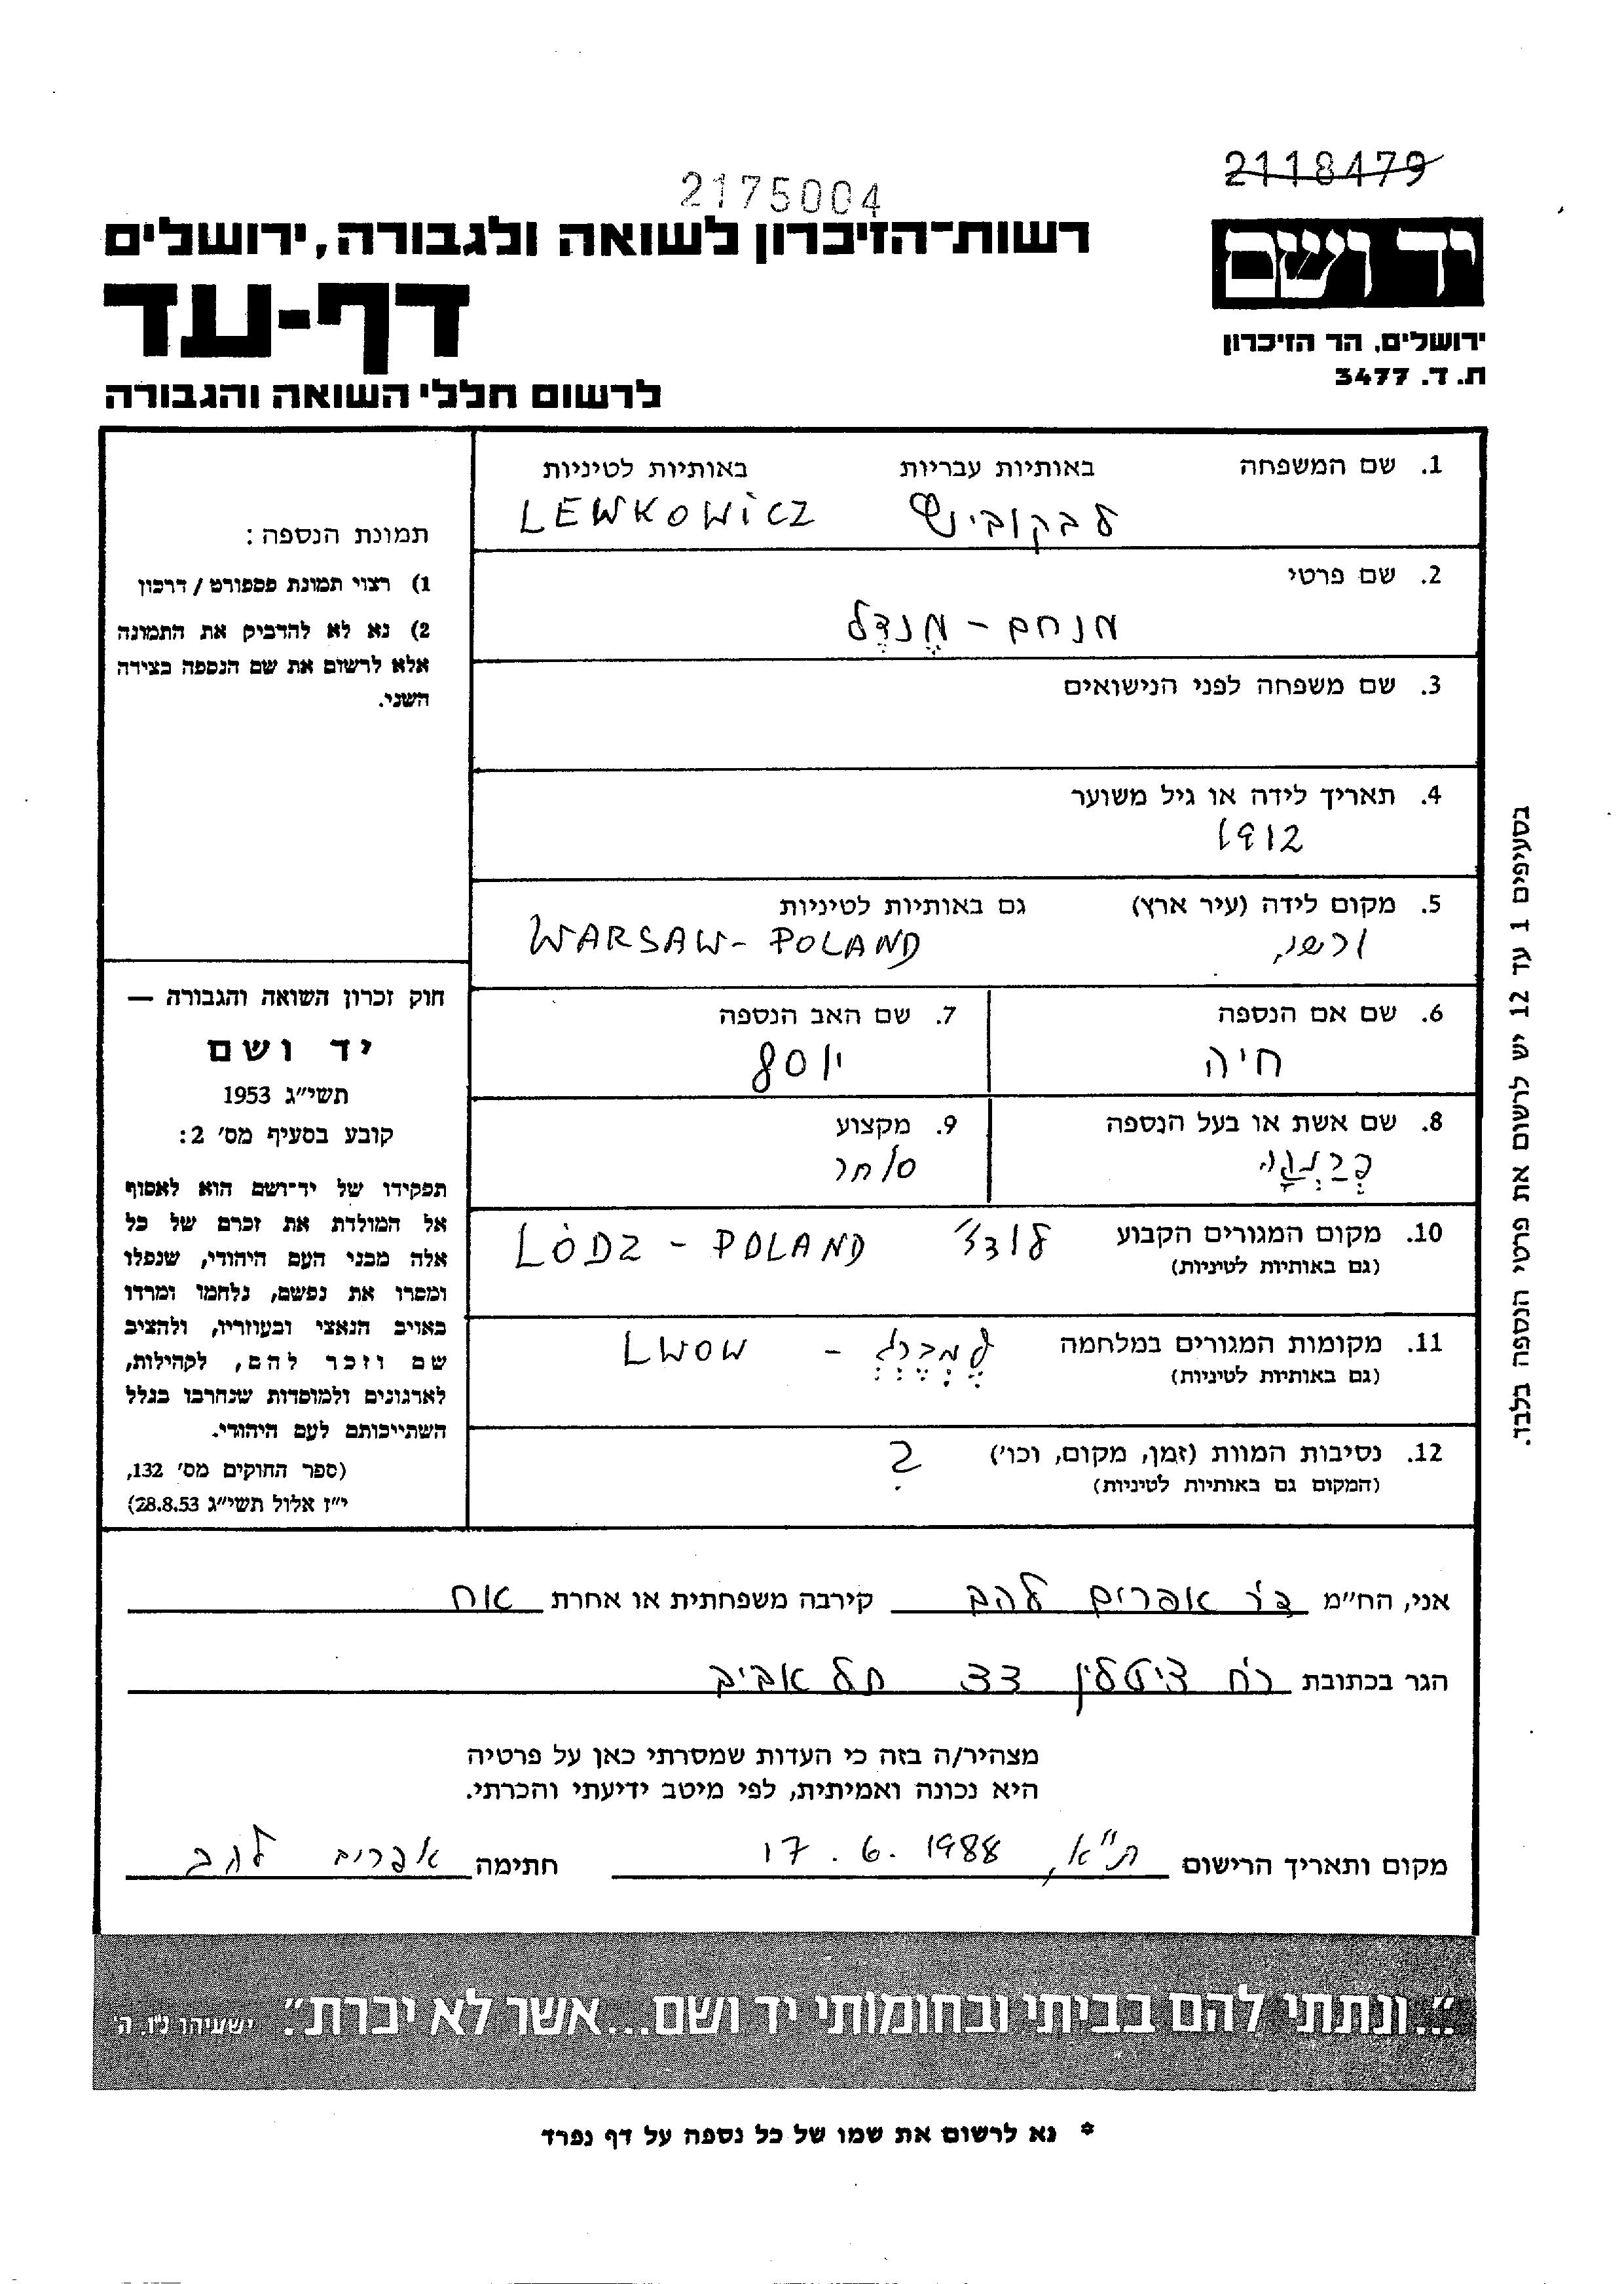 2118479
2175004
יד ושם
ירושלים, הר הזיכרון
ת.ד. 3477
רשות־הזיכרון לשואה ולגבורה, ירושלים
דף-עד
לרשום חללי השואה והגבורה
1. שם המשפחה באותיות עבריות באותיות לטיניות
לבקוביץ LEWKOWICZ
2. שם פרטי
מנחם - מֶנְדֶל
3. שם משפחה לפני הנישואים
4. תאריך לידה או גיל משוער
1912
5. מקום לידה (עיר ארץ) גם באותיות לטיניות
ורשה, WARSAW - POLAND
6. שם אם הנספה
חיה
7. שם האב הנספה
יוסף
8. שם אשת או בעל הנספה
9. מקצוע
סוחר
10. מקום המגורים הקבוע לודז' LÒDZ - POLAND
(גם באותיות לטיניות)
11. מקומות המגורים במלחמה למברג - LWOW
(גם באותיות לטיניות)
12. נסיבות המוות (זמן, מקום, וכו') ?
(המקום גם באותיות לטיניות)
תמונת הנספה:
1) רצוי תמונת פספורט / דרכון
2) נא לא להדביק את התמונה
אלא לרשום את שם הנספה בצידה
השני.
חוק זכרון השואה והגבורה —
יד ושם
תשי"ג 1953
קובע בסעיף מס' 2:
תפקידו של יד־ושם הוא לאסוף
אל המולדת את זכרם של כל
אלה מבני העם היהודי, שנפלו
ומסרו את נפשם, נלחמו ומרדו
באויב הנאצי ובעוזריו, ולהציב
שם וזכר להם, לקהילות,
לארגונים ולמוסדות שנחרבו בגלל
השתייכותם לעם היהודי.
(ספר החוקים מס' 132,
י"ז אלול תשי"ג 28.8.53)
בסעיפים 1 עד 12 יש לרשום את פרטי הנספה בלבד.
אני, הח"מ ד"ר אפרים להב קירבה משפחתית או אחרת אח
הגר בכתובת רח' צייטלין תל אביב
מצהיר/ה בזה כי העדות שמסרתי כאן על פרטיה
היא נכונה ואמיתית, לפי מיטב ידיעתי והכרתי.
מקום ותאריך הרישום ת"א, 17.6.1988 חתימה אפרים להב
"...ונתתי להם בביתי ובחומותי יד ושם...אשר לא יכרת". ישעיהו נ"ו, ה'
* נא לרשום את שמו של כל נספה על דף נפרד